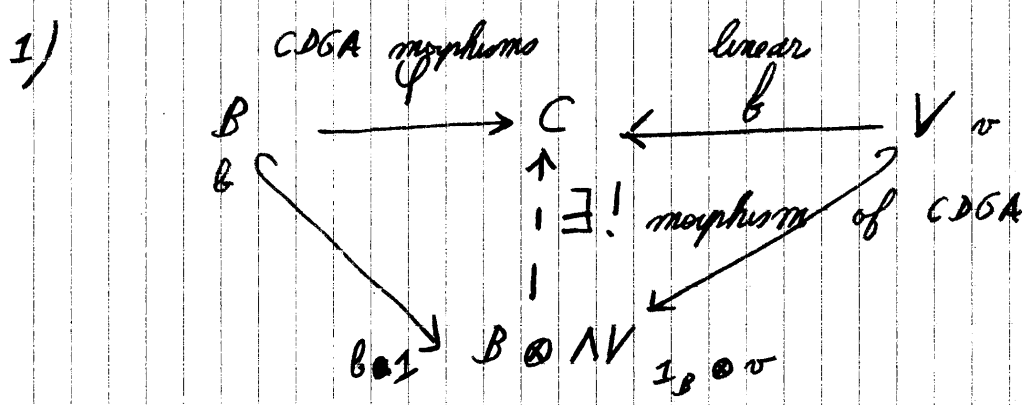 1) CDGA morphisms linear
φ f
B C V v
b
∃! morphism of CDGA
b⊗1 B ⊗ ΛV 1_B ⊗ v